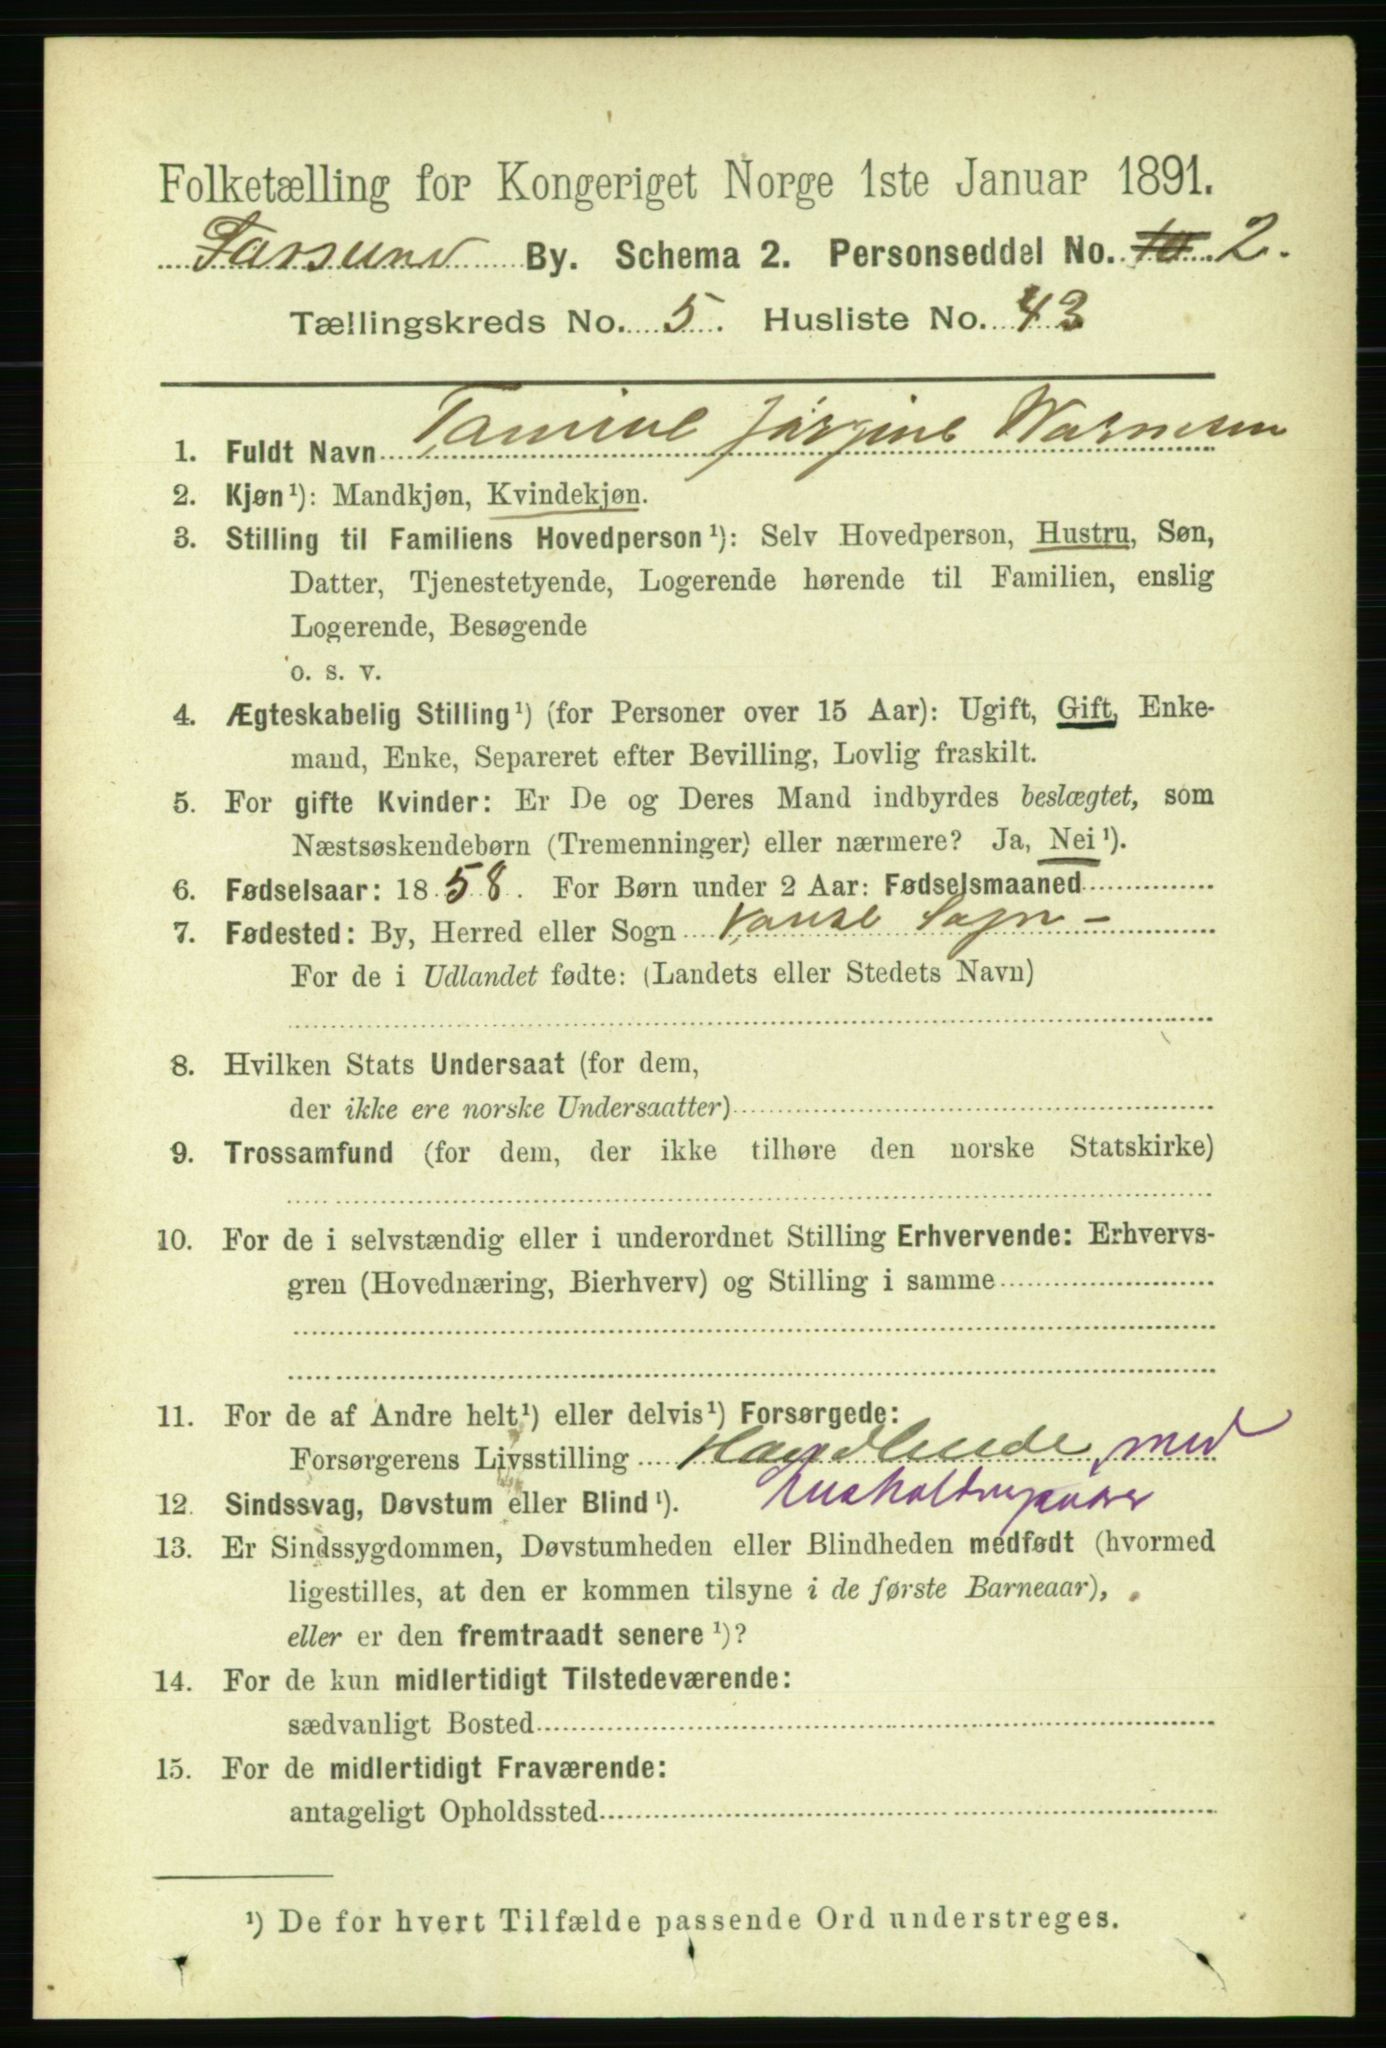 Folketælling for Kongeriget Norge 1ste Januar 1891.
Farsund By. Schema 2. Personseddel No. 10 2.
Tællingskreds No. 5. Husliste No. 43
1. Fuldt Navn Tamine Jørgine Warnesen
2. Kjøn¹): Mandkjøn, Kvindekjøn.
3. Stilling til Familiens Hovedperson¹): Selv Hovedperson, Hustru, Søn,
Datter, Tjenestetyende, Logerende hørende til Familien, enslig
Logerende, Besøgende
o. s. v.
4. Ægteskabelig Stilling¹) (for Personer over 15 Aar): Ugift, Gift, Enke-
mand, Enke, Separeret efter Bevilling, Lovlig fraskilt.
5. For gifte Kvinder: Er De og Deres Mand indbyrdes beslægtet, som
Næstsøskendebørn (Tremenninger) eller nærmere? Ja, Nei¹).
6. Fødselsaar: 1858. For Børn under 2 Aar: Fødselsmaaned
7. Fødested: By, Herred eller Sogn Vanse Sogn -
For de i Udlandet fødte: (Landets eller Stedets Navn)
8. Hvilken Stats Undersaat (for dem,
der ikke ere norske Undersaatter)
9. Trossamfund (for dem, der ikke tilhøre den norske Statskirke)
10. For de i selvstændig eller i underordnet Stilling Erhvervende: Erhvervs-
gren (Hovednæring, Bierhverv) og Stilling i samme
11. For de af Andre helt¹) eller delvis¹) Forsørgede:
Forsørgerens Livsstilling Handlende, med
12. Sindssvag, Døvstum eller Blind¹).
13. Er Sindssygdommen, Døvstumheden eller Blindheden medfødt (hvormed
ligestilles, at den er kommen tilsyne i de første Barneaar),
eller er den fremtraadt senere¹)?
14. For de kun midlertidigt Tilstedeværende:
sædvanligt Bosted
15. For de midlertidigt Fraværende:
antageligt Opholdssted
¹) De for hvert Tilfælde passende Ord understreges.